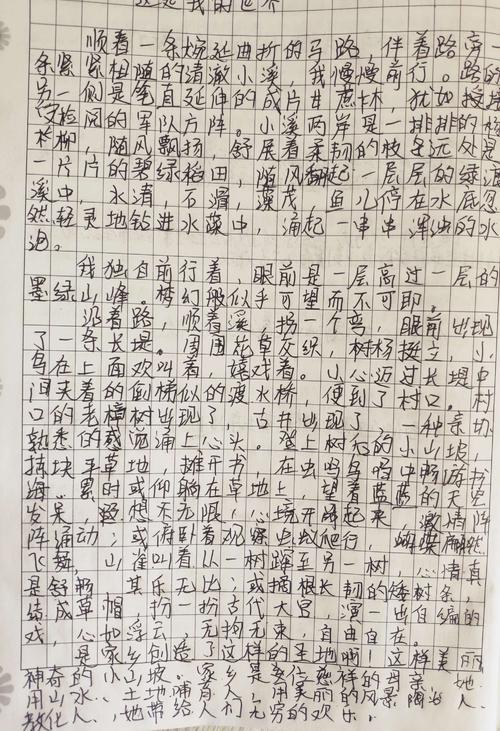 这是我的世界
顺着一条蜿延曲折的马路，伴着路旁
条紧紧相随的清澈小溪，我慢慢前行。路的
另一侧是笔直延伸的成片甘蔗林，犹如接
受检阅的军队方阵。小溪两岸是一排排的杨
柳，随风飘扬，舒展着柔韧的枝，远处是
一片片的碧绿稻田，随风掀起一层层的绿波
溪中，水清，石滑，藻茂，鱼儿停在水底忽
然轻灵地钻进水藻中，涌起一串串浑浊的水
泡。
我独自前行着，眼前是一层高过一层的
墨绿山峰。梦幻般似乎可望而不可即。
沿着路，顺着溪，拐一个弯，眼前出现
了一条长堤。周围花草交织，树杨挺立，小
鸟在上面欢叫着，嬉戏着。小心迈过长堤中
间夹着的倒梯似的渡水桥，便到了村口。村
口的老樟树出现了，古井出现了，一种亲切
熟悉的感觉涌上心头。登上树后的小山坡，
拣块平草地，摊开书，在虫鸣鸟鸣中畅游书
海。累时或仰躺在草地上，望着蓝蓝的天空
发呆，遐想无限，心境开阔起来，激情阵
阵涌动；或俯卧着观蝶虫蚁爬行，蝴蝶翩然
飞舞，山雀叫着从一树蹿至另一树，心情真
是舒畅其乐无比；或摘根长韧的矮树条，
结成草帽扮一扮古代大冒演一出自编的
戏，心如浮云，无拘无束，自由自在。
是家乡创造了这样的圣地啊！这样美丽
神奇小山坡。家乡是多位慈祥的母亲，她
用山水土地哺育人，用美丽的风景陶冶人
教化人，土地带给人们无穷的欢乐。